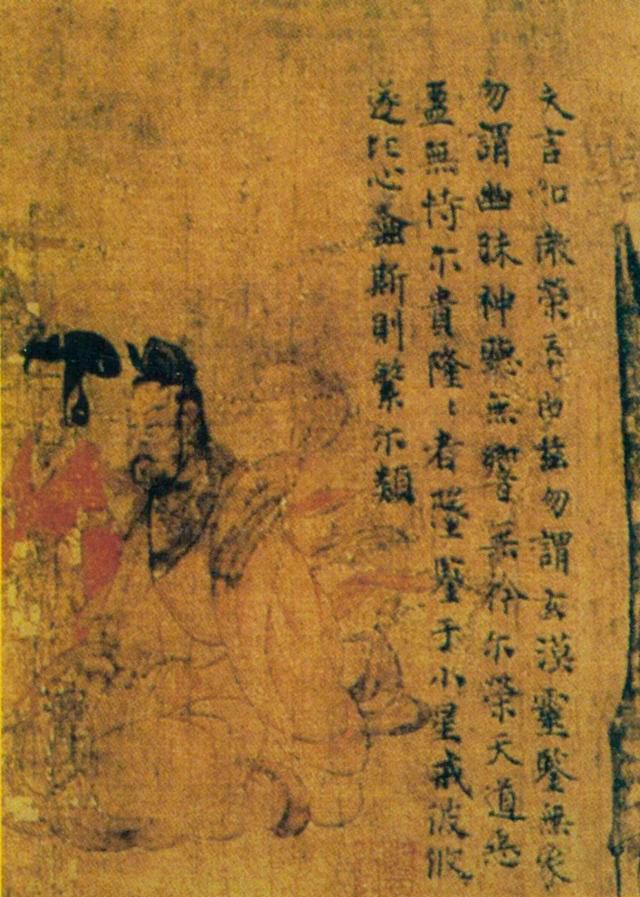 夫言如微榮辱由茲勿謂玄漠靈鑒無象
勿謂幽昧神聽無響無矜尓榮天道惡
盈無恃尓貴隆〻者墜鑒于小星戒彼攸
遂比心螽斯則繁尓類